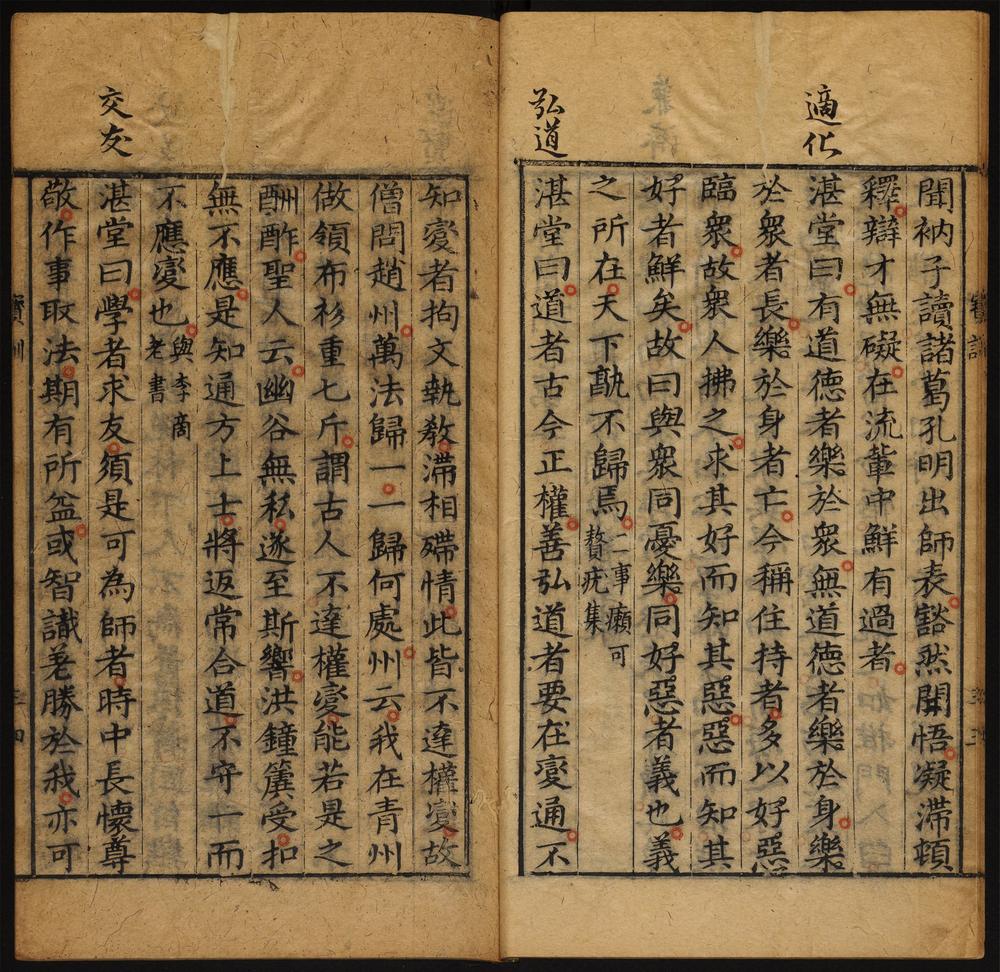 適化
弘道
聞衲子讀諸葛孔明出師表豁然開悟凝滯頓
釋辯才無礙在流輩中鮮有過者
湛堂曰有道德者樂於衆無道德者樂於身樂
於衆者長樂於身者亡今稱住持者多以好惡
臨衆故衆人拂之求其好而知其惡惡而知其
好者鮮矣故曰與衆同憂樂同好惡者義也義
之所在天下孰不歸焉二事癩可
贅疣集
湛堂曰道者古今正權善弘道者要在變通不
交友
知變者拘文執教滯相殢情此皆不達權變故
僧問趙州萬法歸一一歸何處州云我在青州
做領布衫重七斤謂古人不達權變能若是之
酬酢聖人云幽谷無私遂至斯響洪鐘簴受扣
無不應是知通方上士將返常合道不守一而
不應變也與李商
老書
湛堂曰學者求友須是可為師者時中長懷尊
敬作事取法期有所益或智識差勝於我亦可